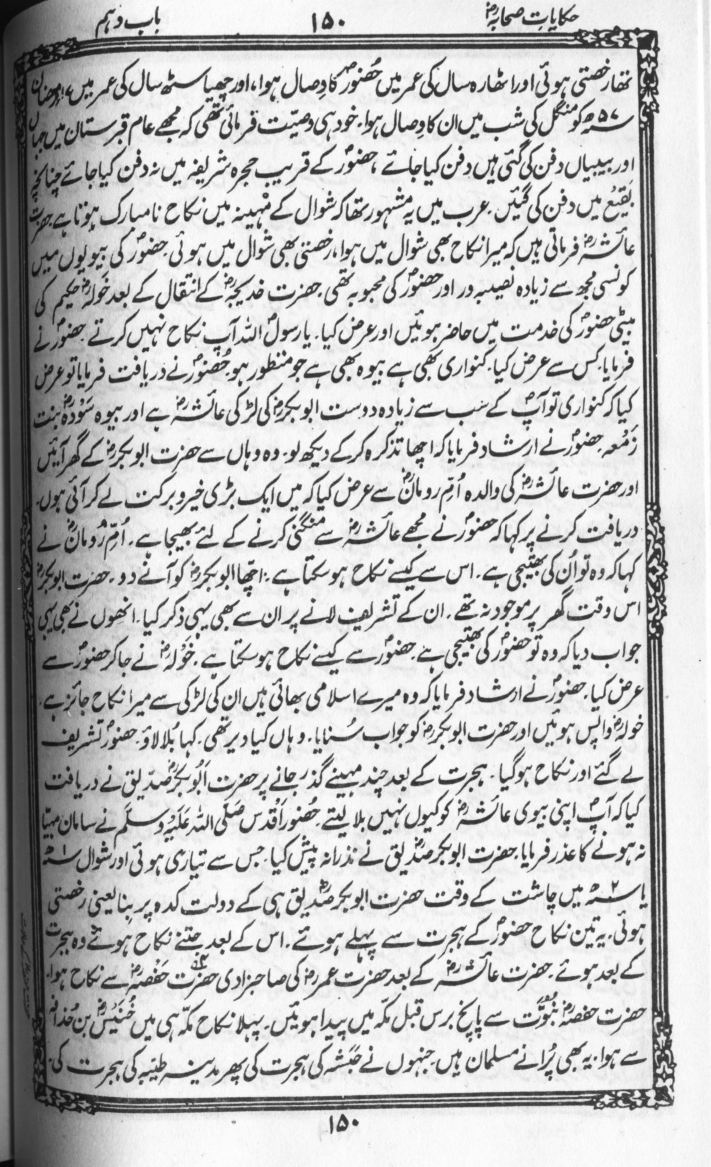 حکایاتِ صحابہؓ ۱۵۰ باب دہم
تھا رخصتی ہوئی اور اٹھارہ سال کی عمر میں حضورؐ کا وصال ہوا، اور چھیاسٹھ سال کی عمر میں ۱۷ رمضان
۵۷ھ کو منگل کی شب میں ان کا وصال ہوا۔ خود ہی وصیت فرمائی تھی کہ مجھے عام قبرستان میں جہاں
اور بیبیاں دفن کی گئی ہیں دفن کیا جائے حضورؐ کے قریب حجرہ شریفہ میں نہ دفن کیا جائے چنانچہ
بقیع میں دفن کی گئیں۔ عرب میں یہ مشہور تھا کہ شوال کے مہینہ میں نکاح نامبارک ہوتا ہے حضرت
عائشہؓ فرماتی ہیں کہ میرا نکاح بھی شوال میں ہوا، رخصتی بھی شوال میں ہوئی حضورؐ کی بیویوں میں
کونسی مجھ سے زیادہ نصیبہ ور اور حضورؐ کی محبوبہ تھی۔ حضرت خدیجہؓ کے انتقال کے بعد خولہؓ حکیم کی
بیٹی حضورؐ کی خدمت میں حاضر ہوئیں اور عرض کیا۔ یا رسول اللہ آپ نکاح نہیں کرتے حضورؐ نے
فرمایا کس سے عرض کیا۔ کنواری بھی ہے بیوہ بھی ہے جو منظور ہو حضورؐ نے دریافت فرمایا تو عرض
کیا کہ کنواری تو آپؐ کے سب سے زیادہ دوست ابوبکرؓ کی لڑکی عائشہؓ ہے اور بیوہ سودہؓ بنت
زمعہ حضورؐ نے ارشاد فرمایا کہ اچھا تذکرہ کر کے دیکھ لو۔ وہ وہاں سے حضرت ابوبکرؓ کے گھر آئیں
اور حضرت عائشہؓ کی والدہ ام رومانؓ سے عرض کیا کہ میں ایک بڑی خیر و برکت لے کر آئی ہوں۔
دریافت کرنے پر کہا کہ حضورؐ نے مجھے عائشہؓ سے منگنی کرنے کے لئے بھیجا ہے۔ ام رومانؓ نے
کہا کہ وہ تو ان کی بھتیجی ہے۔ اس سے کیسے نکاح ہو سکتا ہے۔ اچھا ابوبکرؓ کو آنے دو۔ حضرت ابوبکرؓ
اس وقت گھر پر موجود نہ تھے۔ ان کے تشریف لانے پر ان سے بھی یہی ذکر کیا۔ انھوں نے بھی یہی
جواب دیا کہ وہ تو حضورؐ کی بھتیجی ہے حضورؐ سے کیسے نکاح ہو سکتا ہے۔ خولہؓ نے جا کر حضورؐ سے
عرض کیا۔ حضورؐ نے ارشاد فرمایا کہ وہ میرے اسلامی بھائی ہیں ان کی لڑکی سے میرا نکاح جائز ہے
خولہؓ واپس ہوئیں اور حضرت ابوبکرؓ کو جواب سنایا۔ وہاں کیا دیر تھی۔ کہا بلا لاؤ۔ حضورؐ تشریف
لے گئے اور نکاح ہو گیا۔ ہجرت کے بعد چند مہینے گذر جانے پر حضرت ابوبکر صدیقؓ نے دریافت
کیا کہ آپؐ اپنی بیوی عائشہؓ کو کیوں نہیں بلا لیتے حضور اقدس صلی اللہ علیہ وسلم نے سامان مہیا
نہ ہونے کا عذر فرمایا۔ حضرت ابوبکر صدیقؓ نے نذرانہ پیش کیا۔ جس سے تیاری ہوئی اور شوال ۱ھ
یا ۲ھ میں چاشت کے وقت حضرت ابوبکر صدیقؓ ہی کے دولت کدہ پر بنا یعنی رخصتی
ہوئی۔ یہ تین نکاح حضورؐ کے ہجرت سے پہلے ہوئے۔ اس کے بعد جتنے نکاح ہوئے وہ ہجرت
کے بعد ہوئے۔ حضرت عائشہؓ کے بعد حضرت عمرؓ کی صاحبزادی حضرت حفصہؓ سے نکاح ہوا۔
حضرت حفصہؓ نبوت سے پانچ برس قبل مکہ میں پیدا ہوئیں۔ پہلا نکاح مکہ ہی میں خنیسؓ بن حذافہ
سے ہوا۔ یہ بھی پرانے مسلمان ہیں جنہوں نے حبشہ کی ہجرت کی پھر مدینہ طیبہ کی ہجرت کی۔
۱۵۰